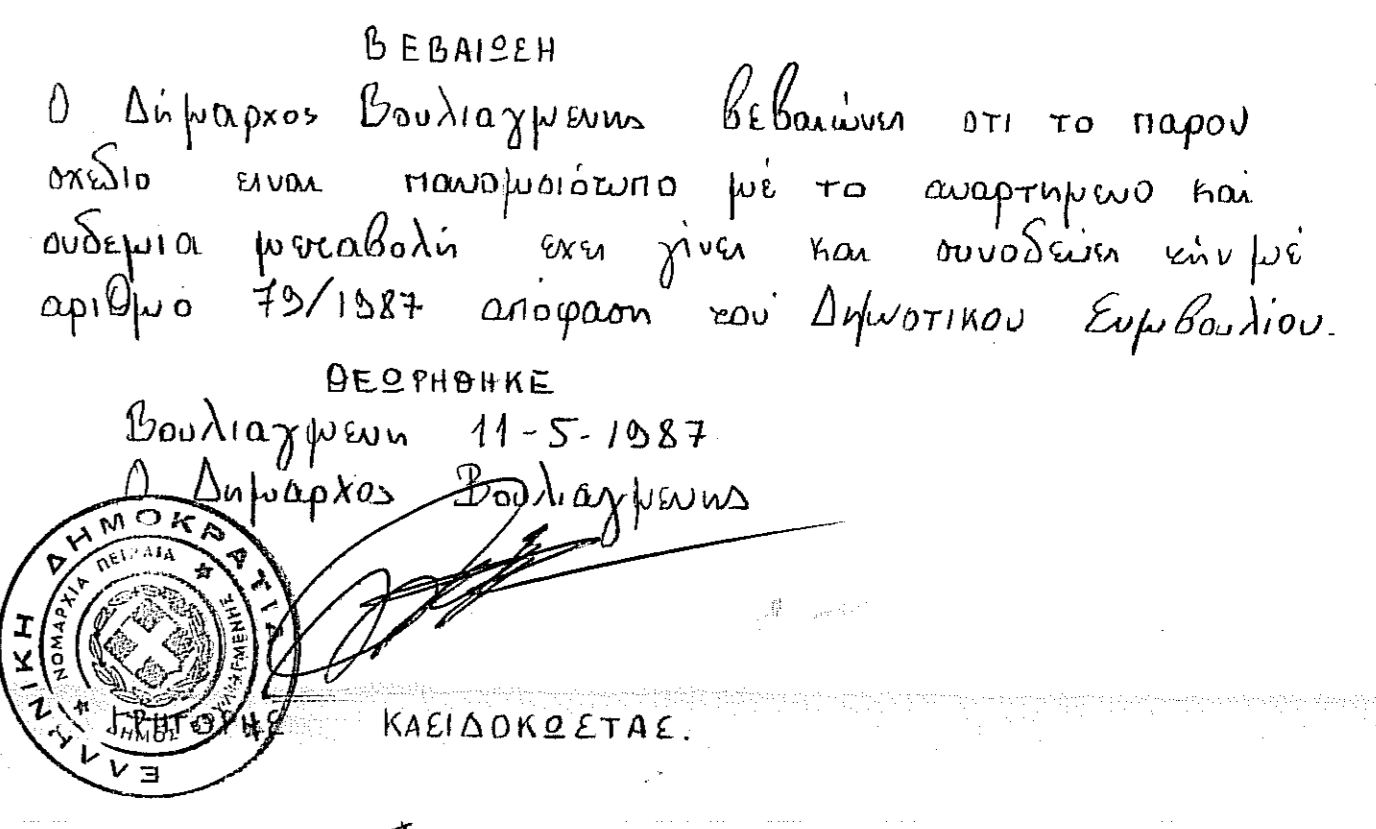 ΒΕΒΑΙΩΣΗ
Ο Δήμαρχος Βουλιαγμενης βεβαιώνει οτι το παρον
σχεδιο ειναι πανομοιότυπο μέ το αναρτημενο καί
ουδεμια μεταβολή εχει γίνει και συνοδεύει τήν μέ
αριθμό 79/1987 απόφαση τού Δημοτικου Συμβουλίου.
ΘΕΩΡΗΘΗΚΕ
Βουλιαγμενη 11-5-1987
Ο Δημαρχος Βουλιαγμενης
ΕΛΛΗΝΙΚΗ ΔΗΜΟΚΡΑΤΙΑ
ΝΟΜΑΡΧΙΑ ΠΕΙΡΑΙΑ
ΔΗΜΟΣ ΒΟΥΛΙΑΓΜΕΝΗΣ
ΓΡΗΓΟΡΗΣ ΚΑΣΙΔΟΚΩΣΤΑΣ.